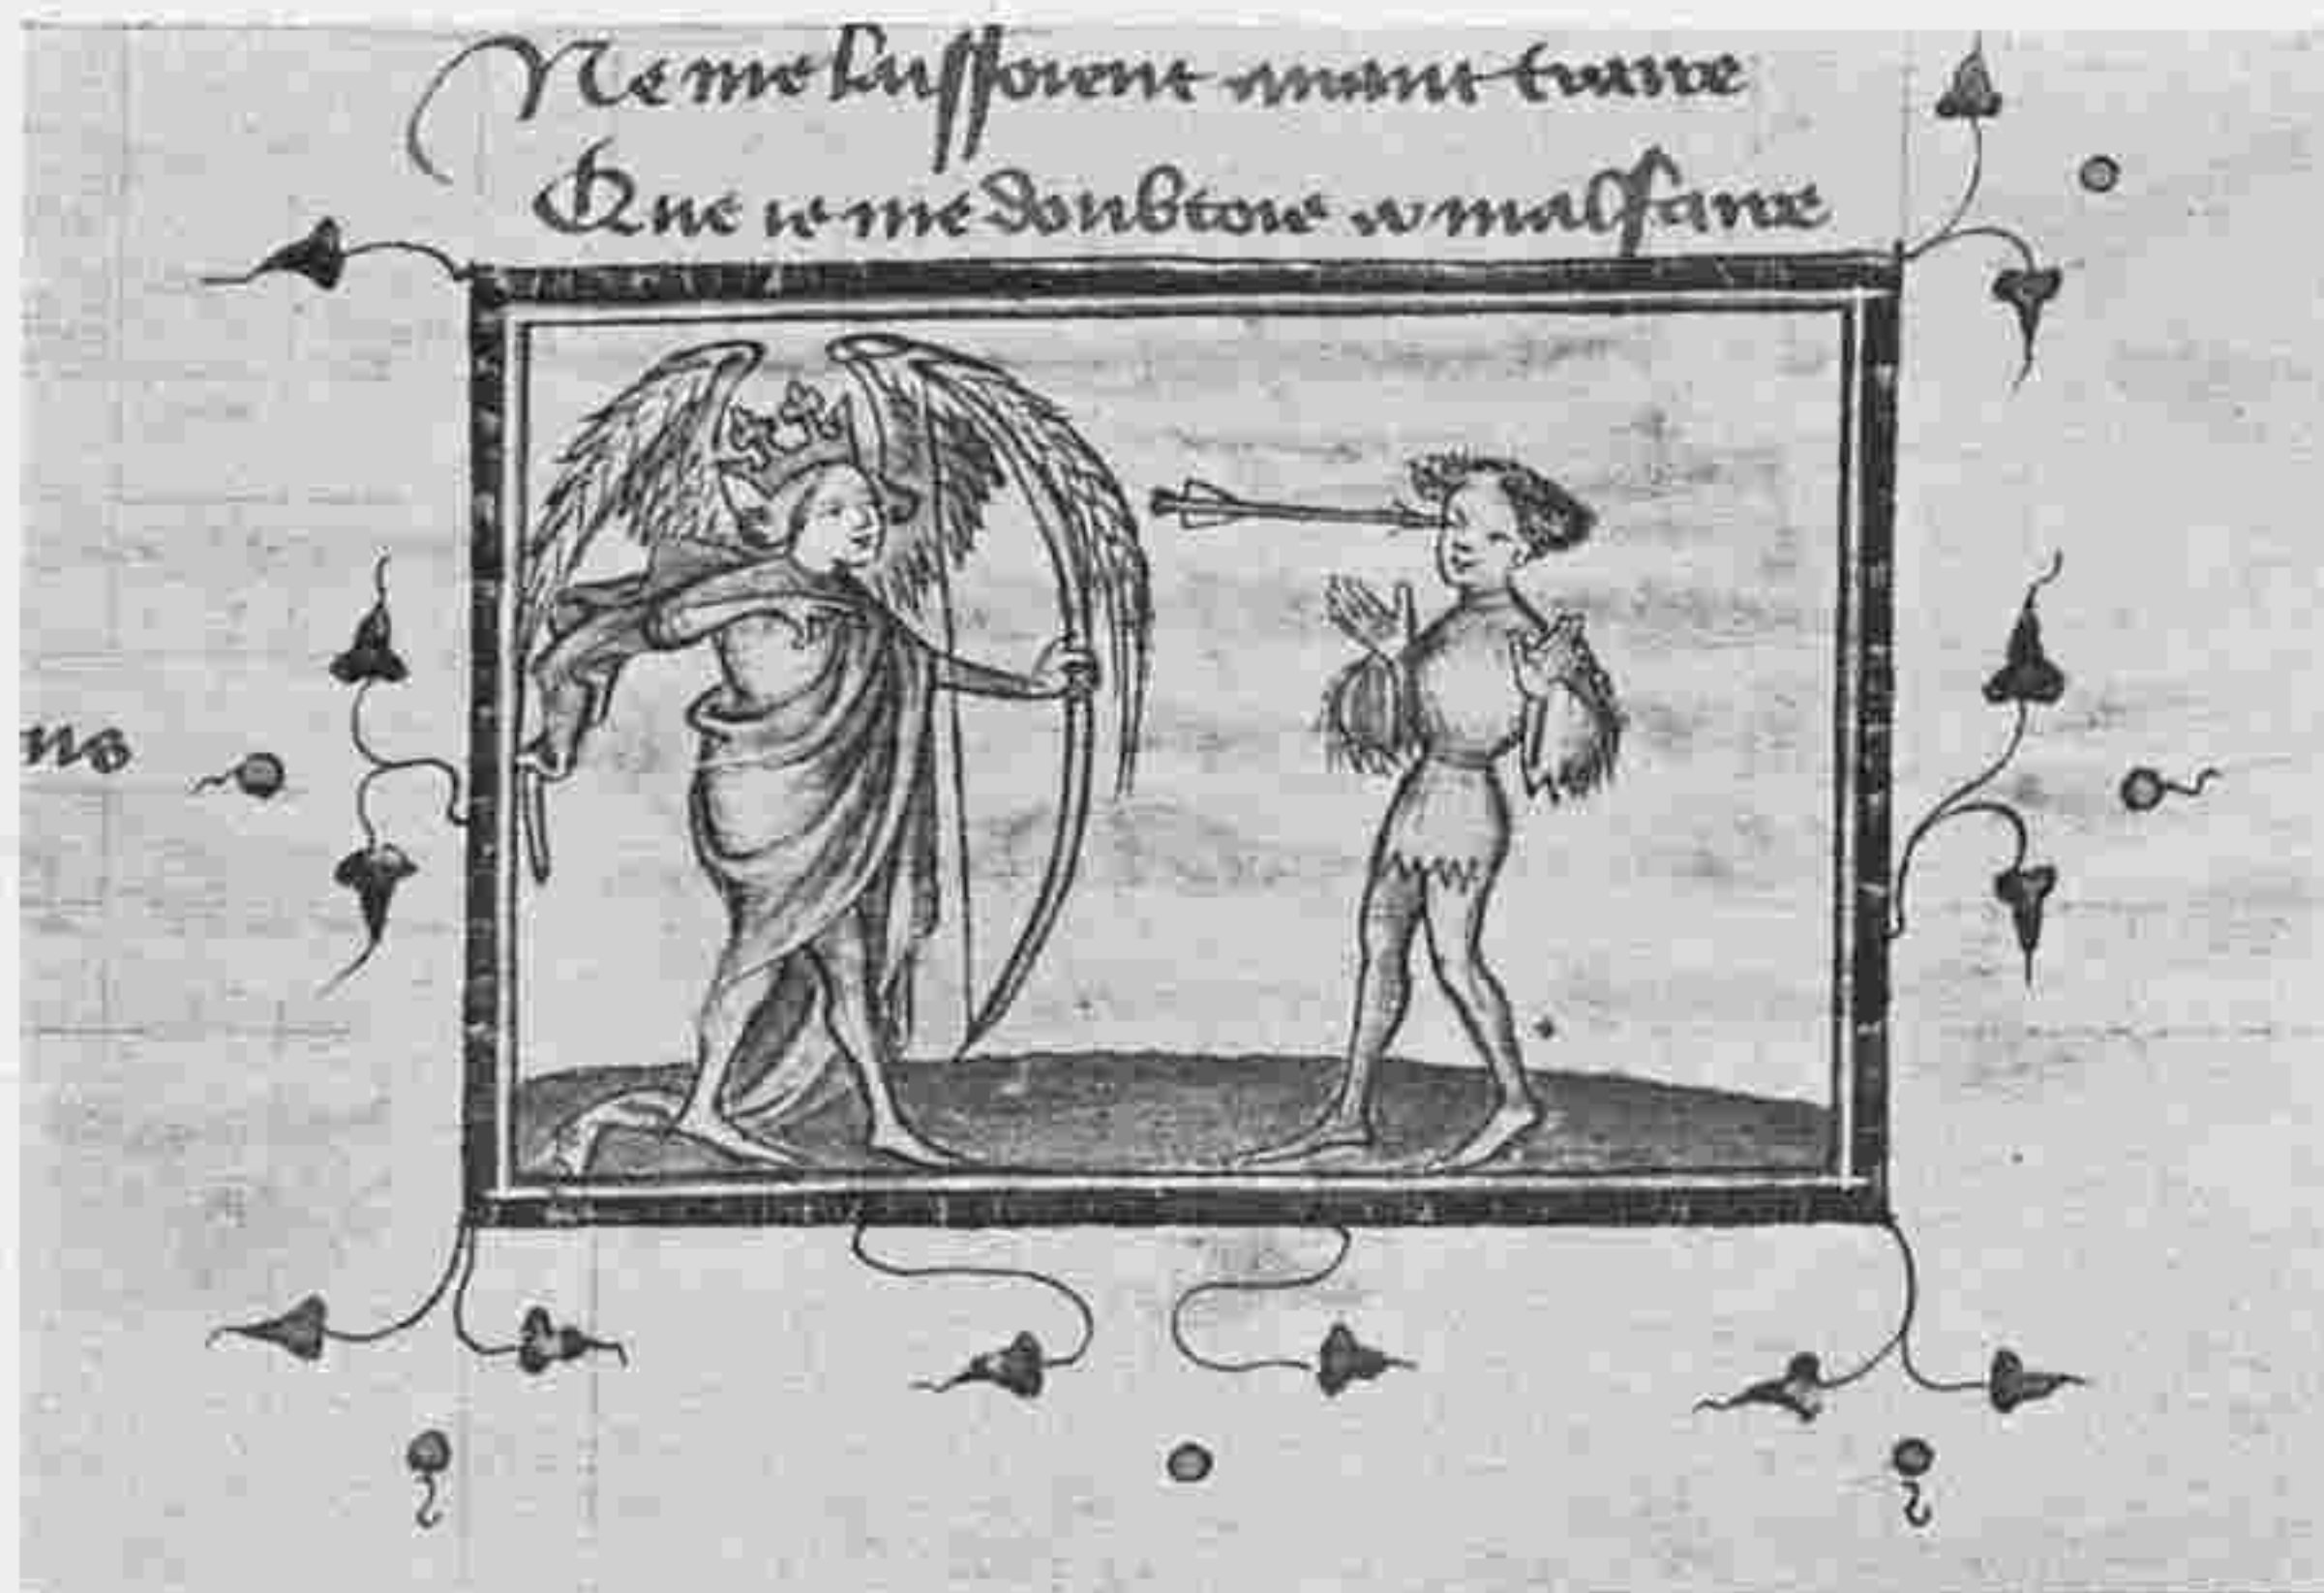 Ne me laissoient avant traire
Que ie me doubtoie a mal faire
ns